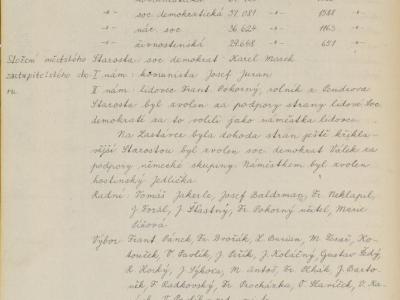 -"- soc demokratická 37.081 -"- 1588 -"-
-"- nár. soc 36.624 -"- 1163 -"-
-"- živnostenská 29.648 -"- 651 -"-
Složení městského Starosta: soc demokrat Karel Marek
zastupitelského sbo I nám: komunista Josef Juran
ru II nám lidovec Frant. Pokorný, rolník z Budkova
Starosta byl zvolen za podpory strany lidové. Soc
demokrati za to volili jako náměstka lidovce.
Na Zastávce byla dohoda stran ještě křikla-
vější Starostou byl zvolen soc demokrat Válek za
podpory německé skupiny. Náměstkem byl zvolen
hostinský Jedlička
Radní: Tomáš Jakerle, Josef Baldrman, Fr. Neklapil,
J Foral, J Šťastný, Fr. Pokorný učitel, Marie
Výbor Frant. Pánek, Fr. Dvořák, L. Burian, M
touček, V. Pavlík, J J Kolačný, Gustav Šedý,
R. Horký, J Sýkora, M Antoš, Fr. J. Barto-
F. Radkovský, Fr. Procházka, V. Slavíček, V.